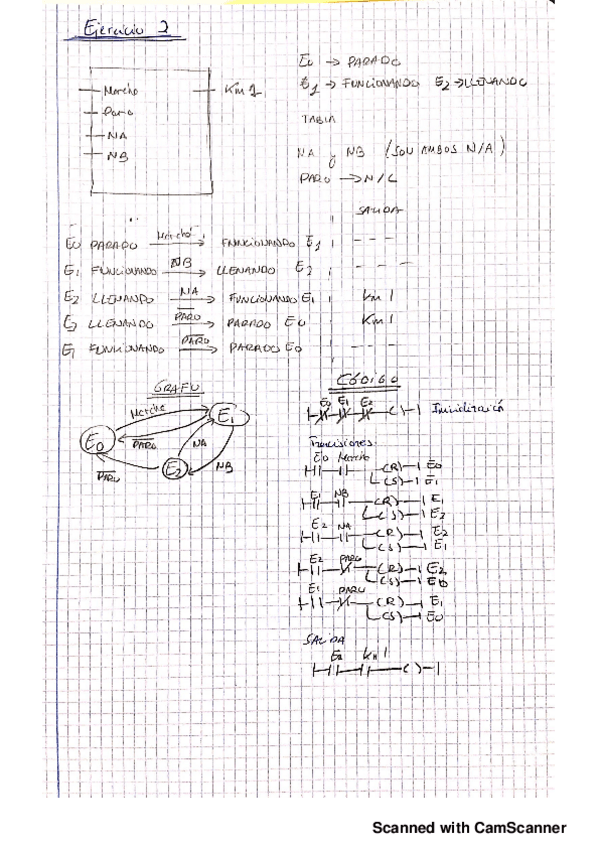 Ejercicio 2
E0 → PARADO
E1 → FUNCIONANDO E2 → LLENANDO
Marcha Km1
Paro
NA
NB
TABLA
NA y NB (SON AMBOS N/A)
PARO → N/C
SALIDA
E0 PARADO Marcha → FUNCIONANDO E1 ---
E1 FUNCIONANDO NB → LLENANDO E2 ---
E2 LLENANDO NA → FUNCIONANDO E1 Km1
E2 LLENANDO PARO → PARADO E0 Km1
E1 FUNCIONANDO PARO → PARADO E0 ---
GRAFO
Marcha
E0 E1
PARO NA
E2 NB
PARO
Código
E0 E1 E2
Inicialización
Transiciones
E0 Marcha (R) E0
(S) E1
E1 NB (R) E1
(S) E2
E2 NA (R) E2
(S) E1
E2 PARO (R) E2
(S) E0
E1 PARO (R) E1
(S) E0
SALIDA
E2 Km1
Scanned with CamScanner